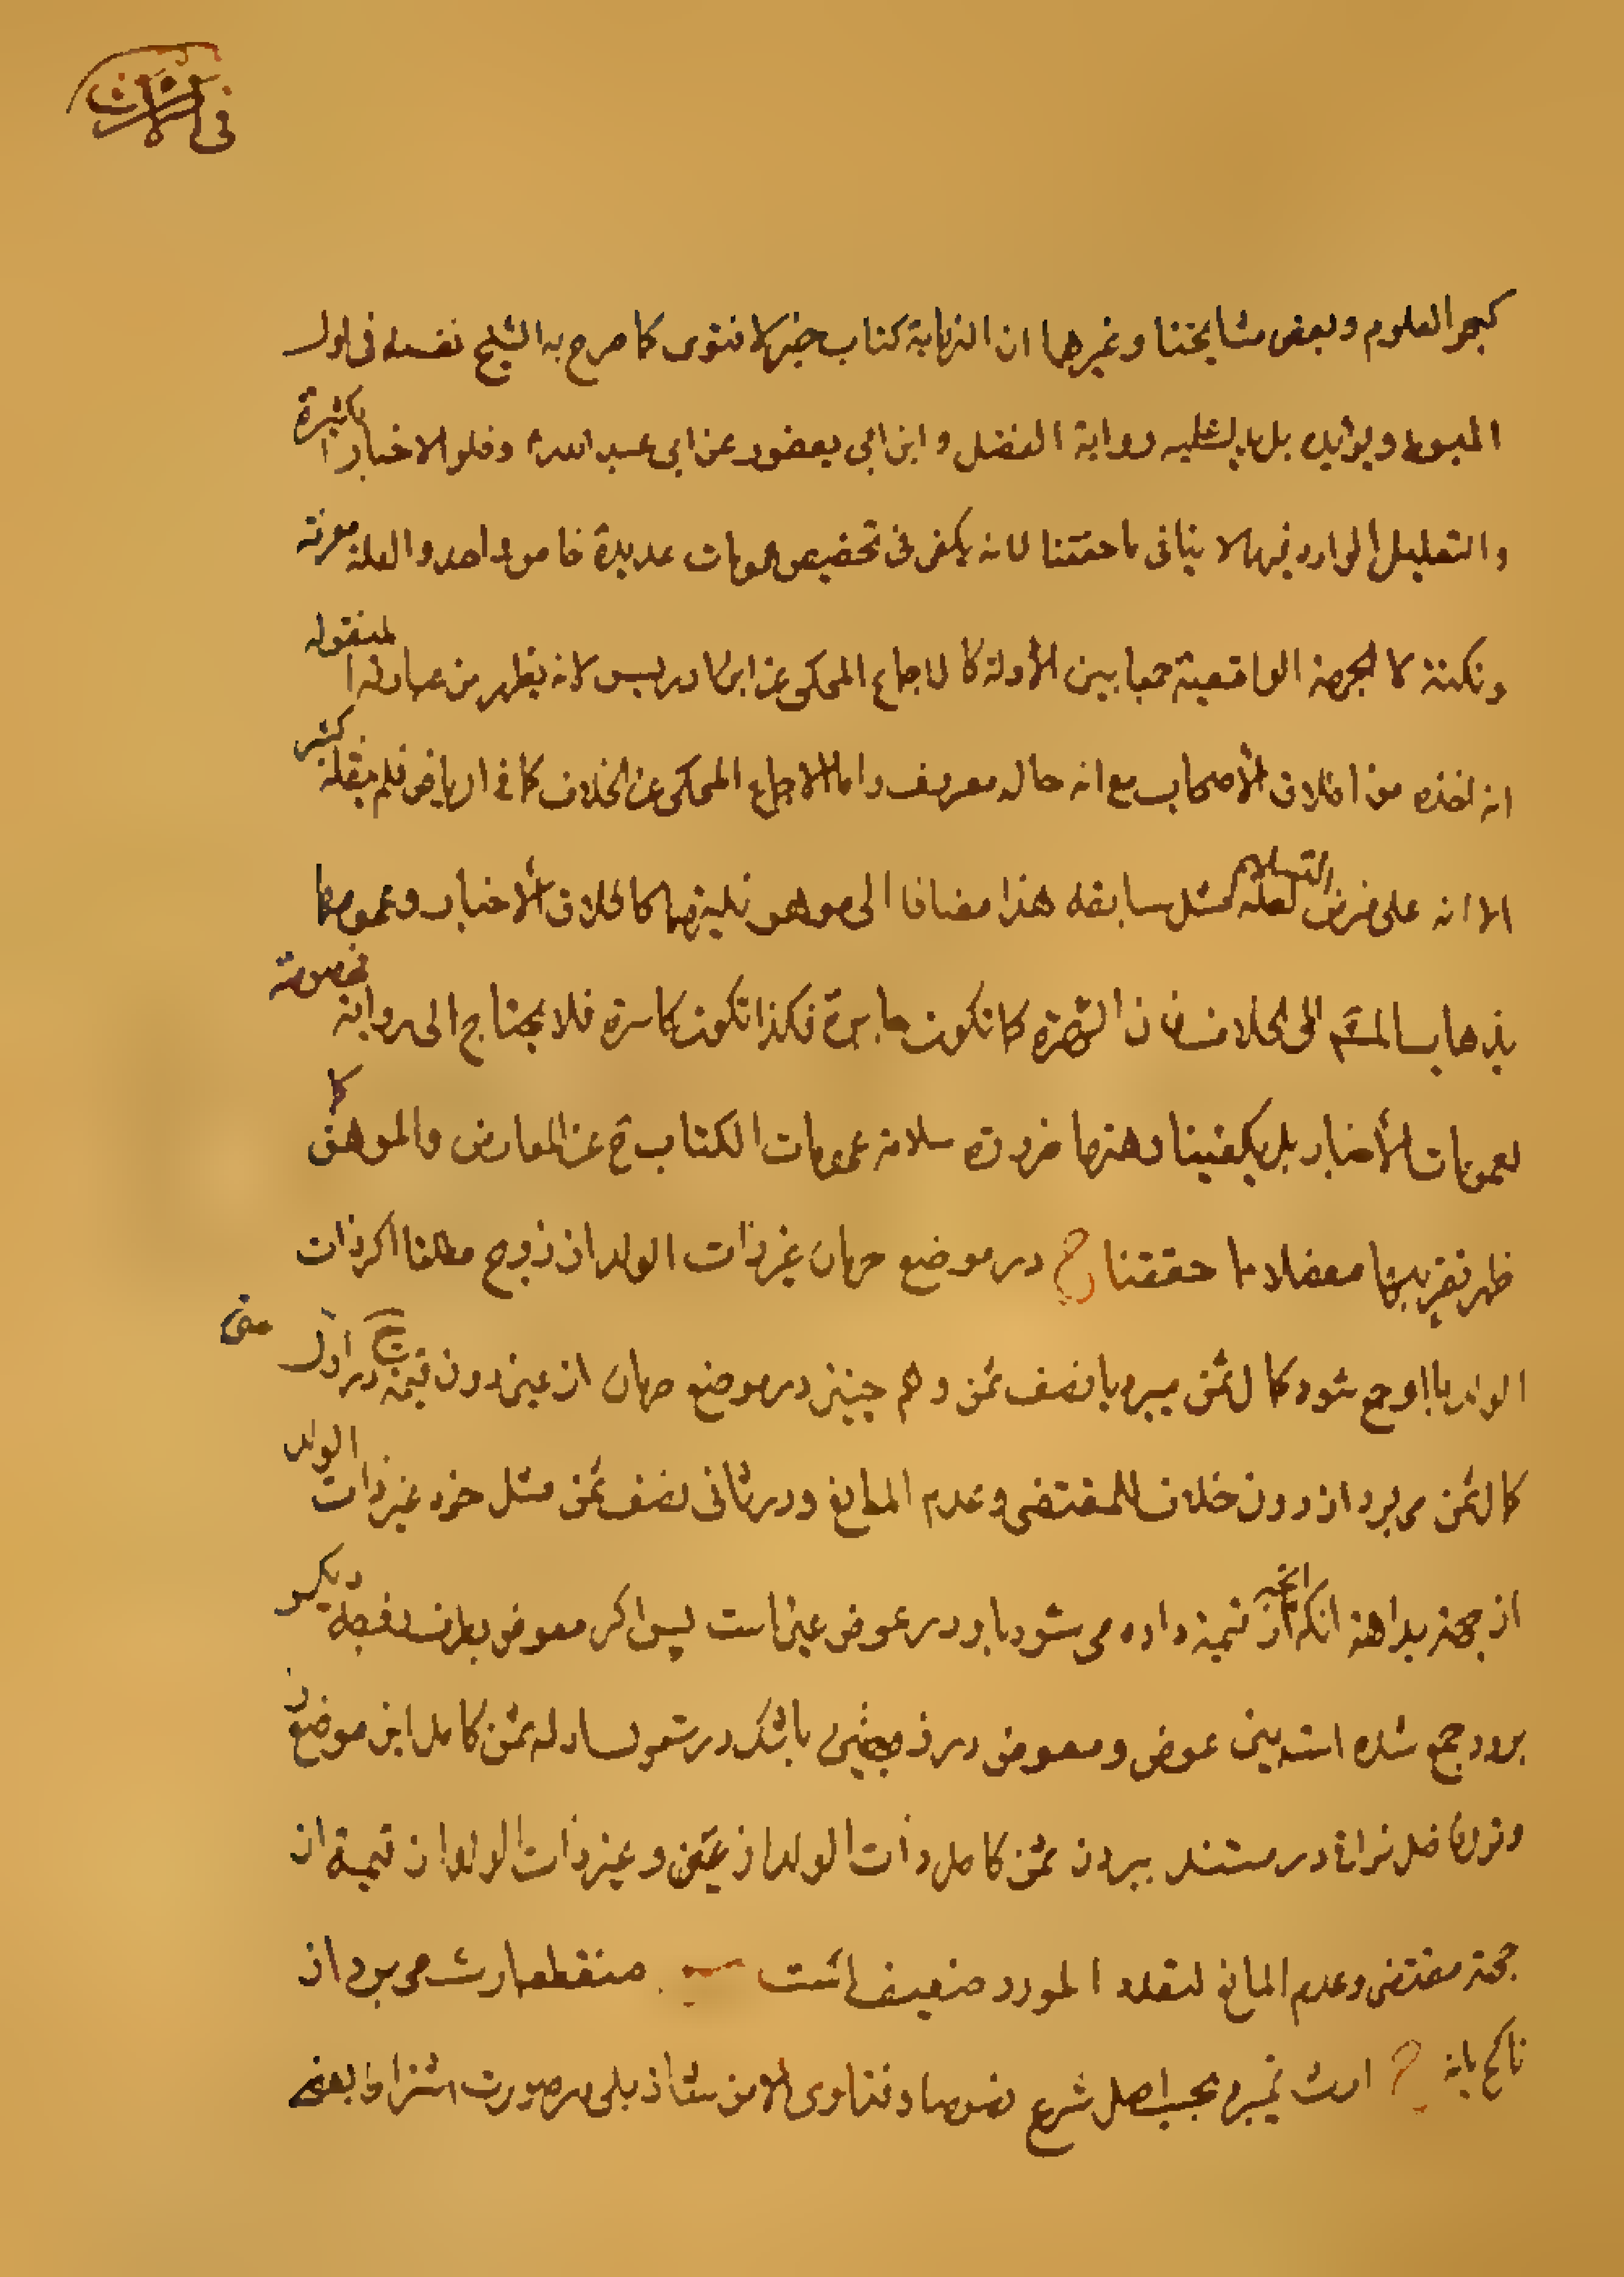 في الارث
كبحر العلوم وبعض مشايخنا وغيرهما ان النهاية كتاب خبر لا فتوى كما صرح به الشيخ نفسه في اول
المبسوط ويؤيده بل يدل عليه رواية الفضل و ابن ابي يعفور عن ابي عبد الله ع وخلو الاخبار الكثيرة
و التعليل الوارد فيها لا ينافي ما حققنا لانه يكفي في تخصيص عمومات عديدة خاص واحد والعلة معرفة
ونكتة لا الجهة الواقعية جمعا بين الأدلة كالاجماع المحكي عن ابن ادريس لانه يظهر من عبارته المنقولة
انه اخذه من اطلاق الأصحاب مع انه حاله معروف واما الاجماع المحكي عن الخلاف كما في الرياض فلم ينقله كثير
الا انه على فرض التسليم لعله كمثل سابقه هذا مضافا الى موهونيتهما كاطلاق الأخبار وعمومها
بذهاب المشهور الى الخلاف فان الشهرة كما تكون جابرة فكذا تكون كاسرة فلا يحتاج الى رواية مخصوصة
لعمومات الأخبار بل يكفينا وهنها ضرورة سلامة عمومات الكتاب ح عن المعارض والموهن كما
ظهر تقريبها مفصلا مما حققنا در موضع حرمان غير ذات الولد از زوج مطلقا اكر ذات
الولد با او جمع شود كمال ثمن ميبرد يا نصف ثمن و هم چنين در موضع حرمان از عين دون قيمة ج در اول يعنى
كمال ثمن مى برد از دون خلاف للمقتضي وعدم المانع و در ثاني نصف ثمن مثل خود غير ذات الولد
از جهة بداهة انكه انچه از قيمة داده مى شود باو در عوض عين است پس اكر معوض بطرف زوجه ديكر
برود جمع شده است بين عوض و معوض در نزد
و فاضل نراقي در مستند ببردن ثمن كامل ذات الولد از عين و غير ذات الولد از قيمة از
جهة مقتضي وعدم المانع لتعدد المورد ضعيف است منقطعه ارث مى برد از
ناكح يا نه ج ارث نميبرد بحسب اصل شرع نصوصا وفتاوى الا من شذ بلى در صورت اشتراط بعضى